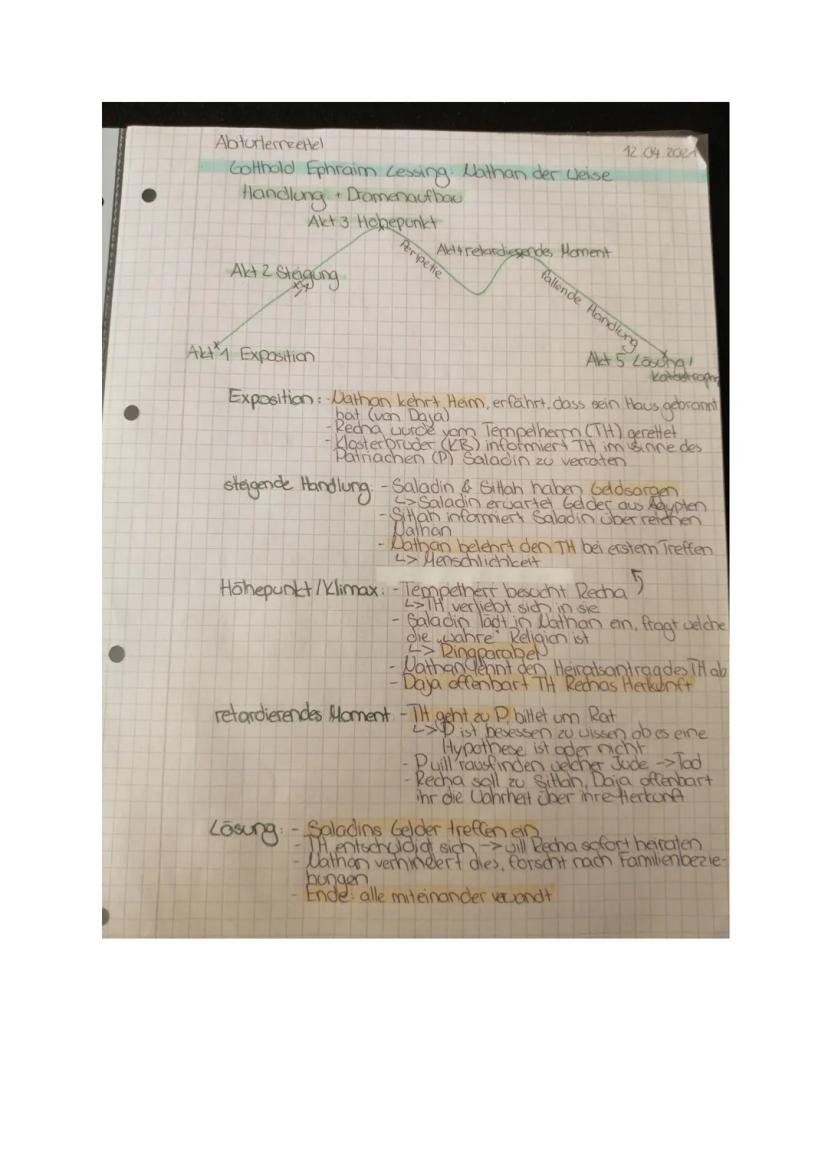 Abiturlernzettel
12.04.2021
Gotthold Ephraim Lessing: Nathan der Weise
Handlung + Dramenaufbau
Akt 3 Höhepunkt
Peripetie
Akt 4 retardierendes Moment
Akt 2 Steigung
fallende Handlung
Akt 1 Exposition
Akt 5 Lösung/
Katastrophe
Exposition: - Nathan kehrt Heim, erfährt, dass sein Haus gebrannt
hat (von Daja)
- Recha wurde vom Tempelherrn (TH) gerettet
- Klosterbruder (KB) informiert TH im Sinne des
Patriachen (P) Saladin zu verraten
steigende Handlung: - Saladin & Sittah haben Geldsorgen
↳ Saladin erwartet Gelder aus Ägypten
- Sittah informiert Saladin über reichen
Nathan
- Nathan belehrt den TH bei erstem Treffen
↳ Menschlichkeit
Höhepunkt/Klimax: - Tempelherr besucht Recha
↳ TH verliebt sich in sie
- Saladin lädt in Nathan ein, fragt welche
die „wahre" Religion ist
↳ Ringparabel
- Nathan lehnt den Heiratsantrag des TH ab
- Daja offenbart TH Rechas Herkunft
retardierendes Moment - TH geht zu P, bittet um Rat
↳ P ist besessen zu wissen ob es eine
Hypothese ist oder nicht
- P will rausfinden welcher Jude -> Tod
- Recha soll zu Sittah, Daja offenbart
ihr die Wahrheit über ihre Herkunft
Lösung: - Saladins Gelder treffen ein
- TH entschuldigt sich -> will Recha sofort heiraten
- Nathan verhindert dies, forscht nach Familienbezie-
hungen
- Ende: alle miteinander verwandt